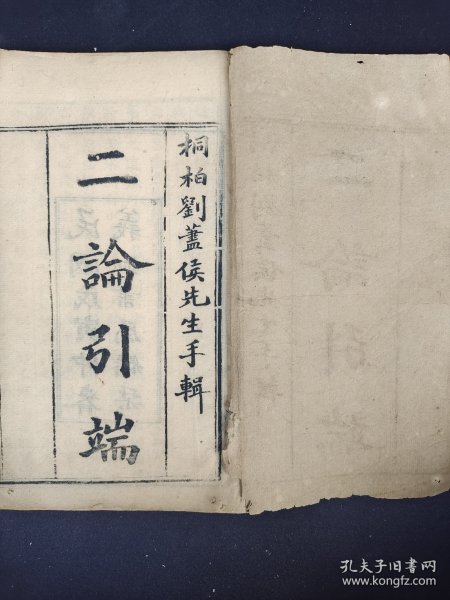 桐柏劉藎侯先生手輯
二論引端
孔夫子旧书网
www.kongfz.com